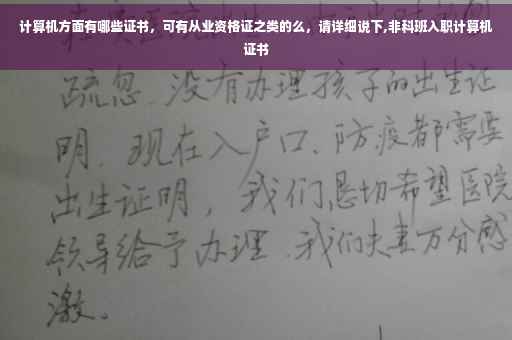 计算机方面有哪些证书，可有从业资格证之类的么，请详细说下,非科班入职计算机
证书
疏忽.没有办理孩子的出生证
明.现在入户口、防疫都需要
出生证明，我们恳切希望医院
领导给予办理.我们夫妻万分感
激。